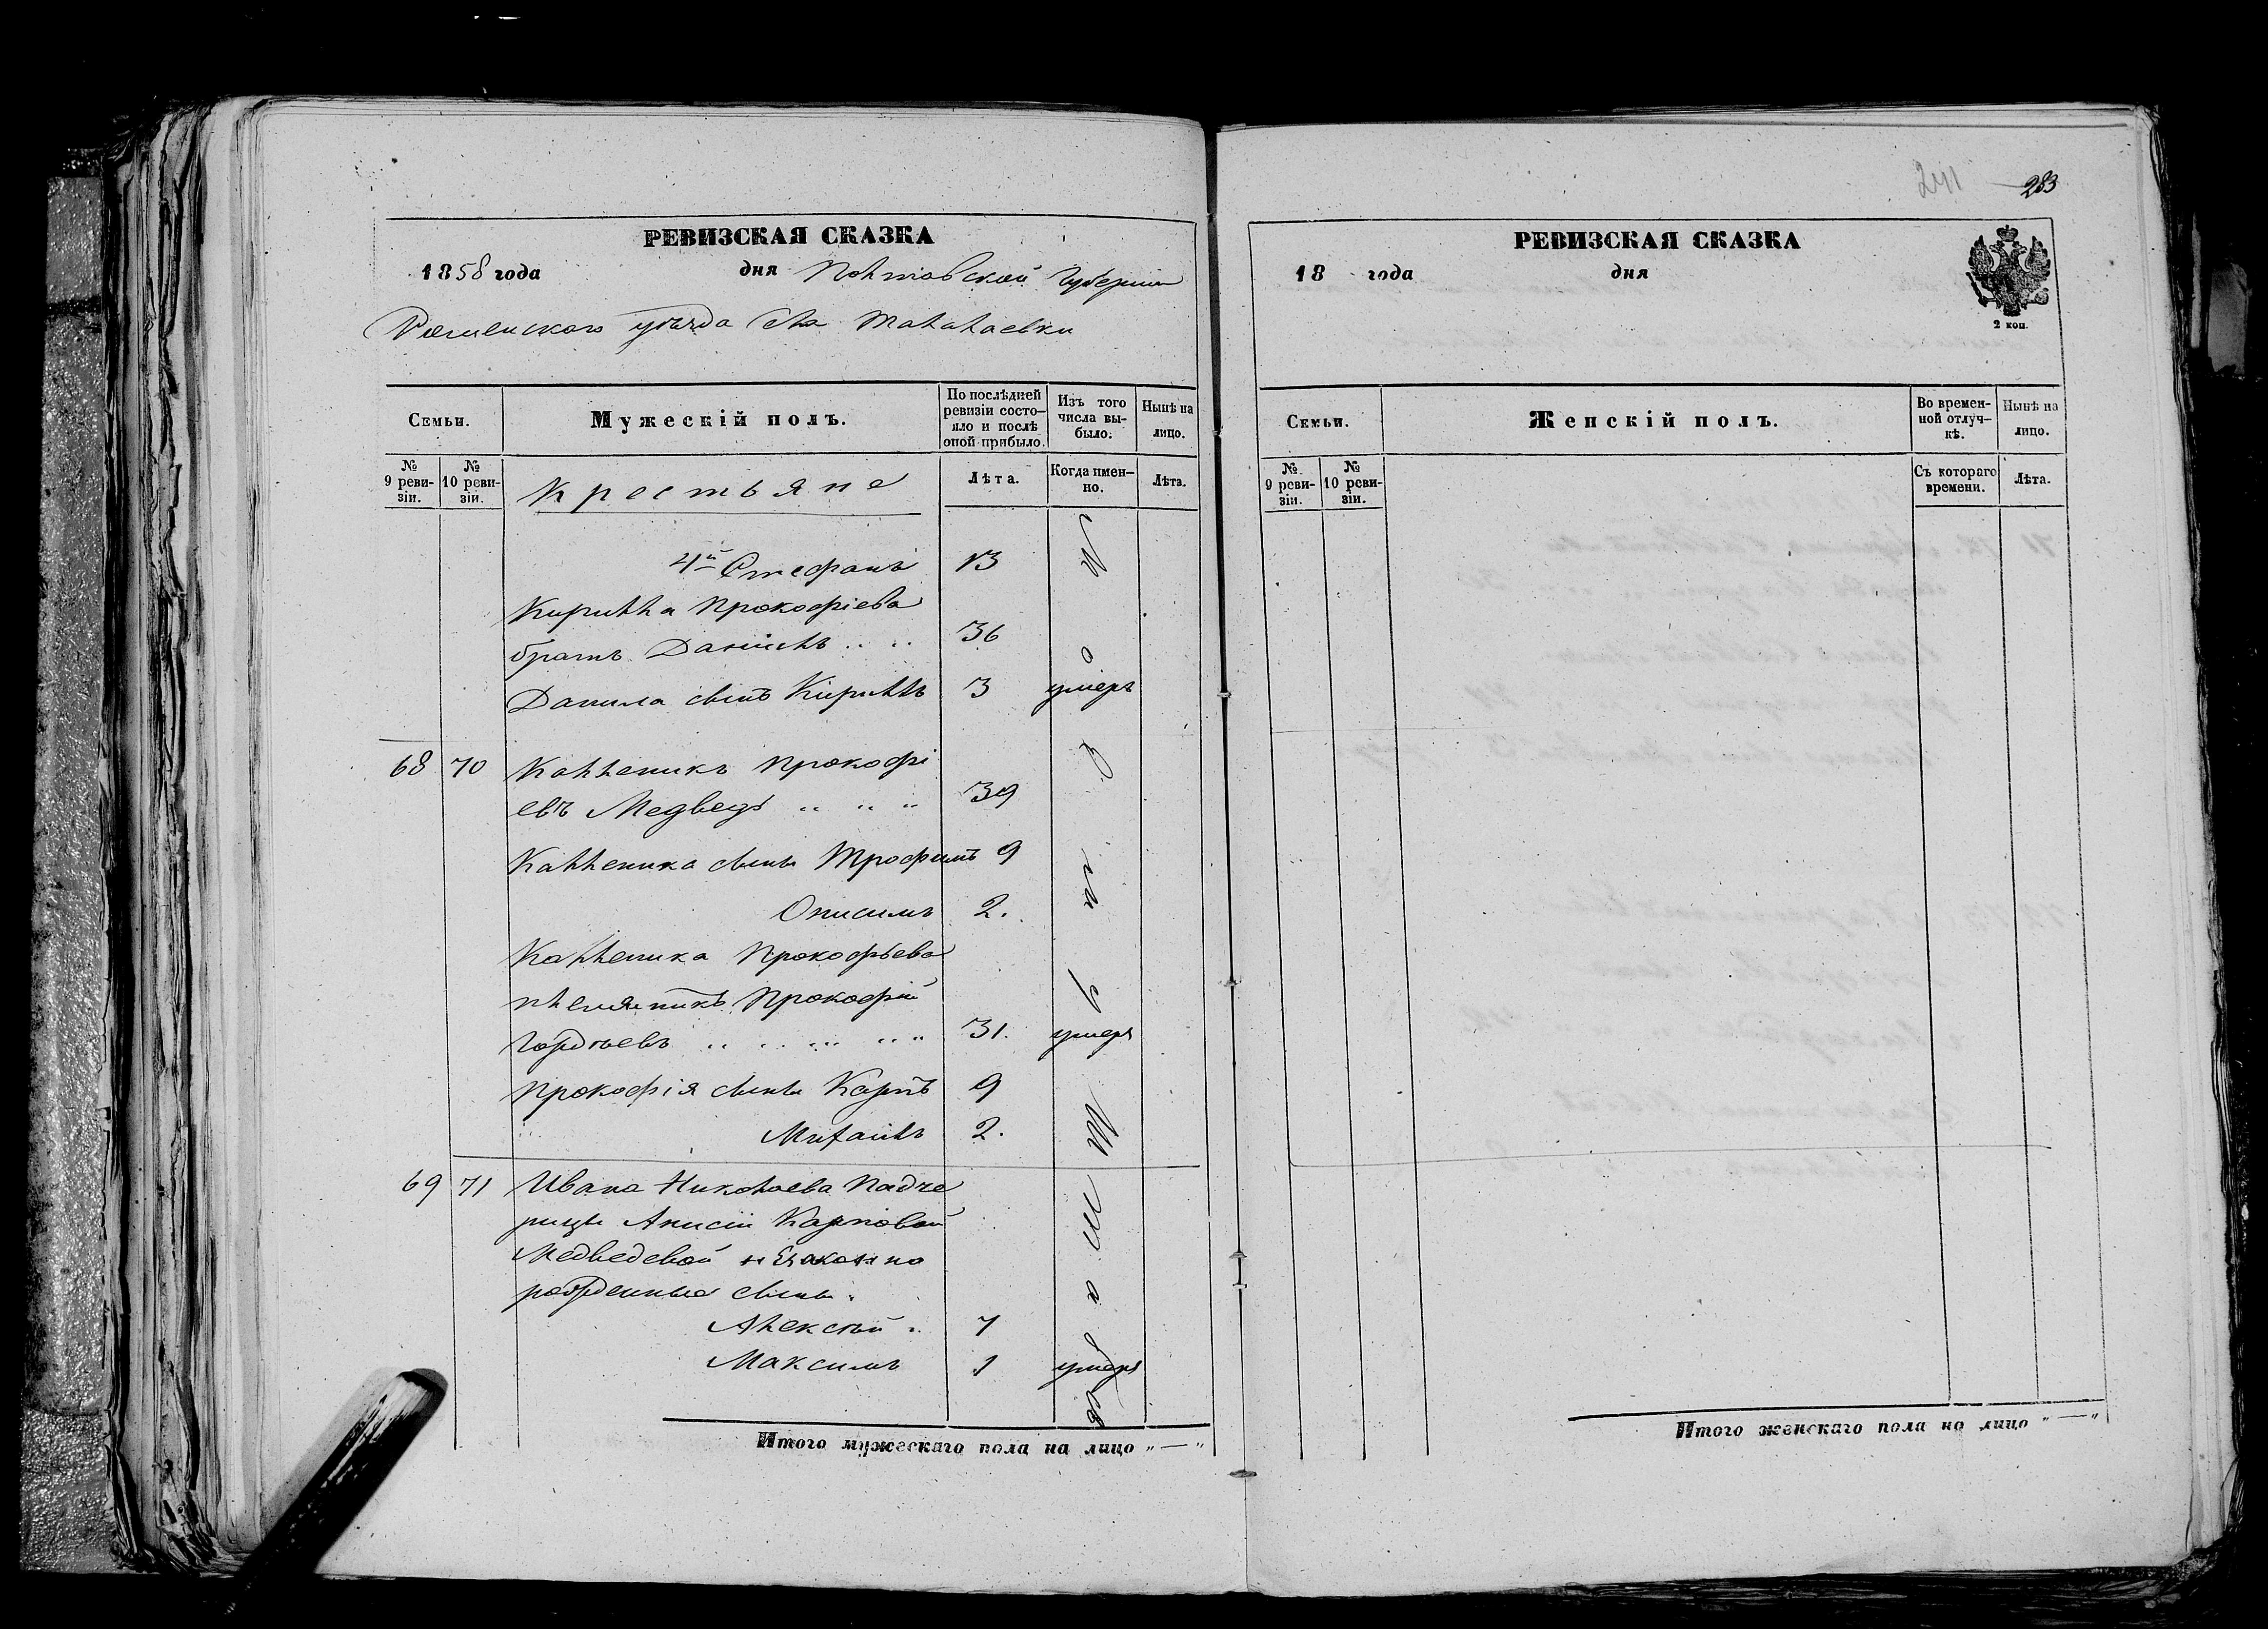 241 283
РЕВИЗСКАЯ СКАЗКА
1858 года дня Полтавской Губерніи
Роменскаго уѣзда села Талалаевки
Семьи.
Мужескій полъ.
По послѣдней ревизіи состо-яло и послѣ оной прибыло.
Изъ того числа вы-было.
Нынѣ на лицо.
№ 9 реви-зіи.
№ 10 реви-зіи.
Крестьяне
Лѣта.
Когда имен-но.
Лѣта.
4й Стефанъ 13
Кирилла Прокофіева
братъ Даніилъ 36
Данила сынъ Кириллъ 3 умеръ
68 70 Калленикъ Прокофі
евъ Медведь 39
Калленика сыны Трофимъ 9
Онисимъ 2.
Калленика Прокофьева
племянникъ Прокофій
Гордѣевъ 31. умеръ
Прокофія сыны Карпъ 9
Михаилъ 2.
69 71 Ивана Николаева Падче
рицы Анисіи Карповой
Медведевой незаконно
рожденные сыны.
Алексѣй 7
Максимъ 1 умеръ
Итого мужескаго пола на лицо „—“
РЕВИЗСКАЯ СКАЗКА
18 года дня
2 коп.
Семьи.
Женскій полъ.
Во времен-ной отлуч-кѣ.
Нынѣ на лицо.
№ 9 реви-зіи.
№ 10 реви-зіи.
Съ котораго времени.
Лѣта.
Итого женскаго пола на лицо „—“